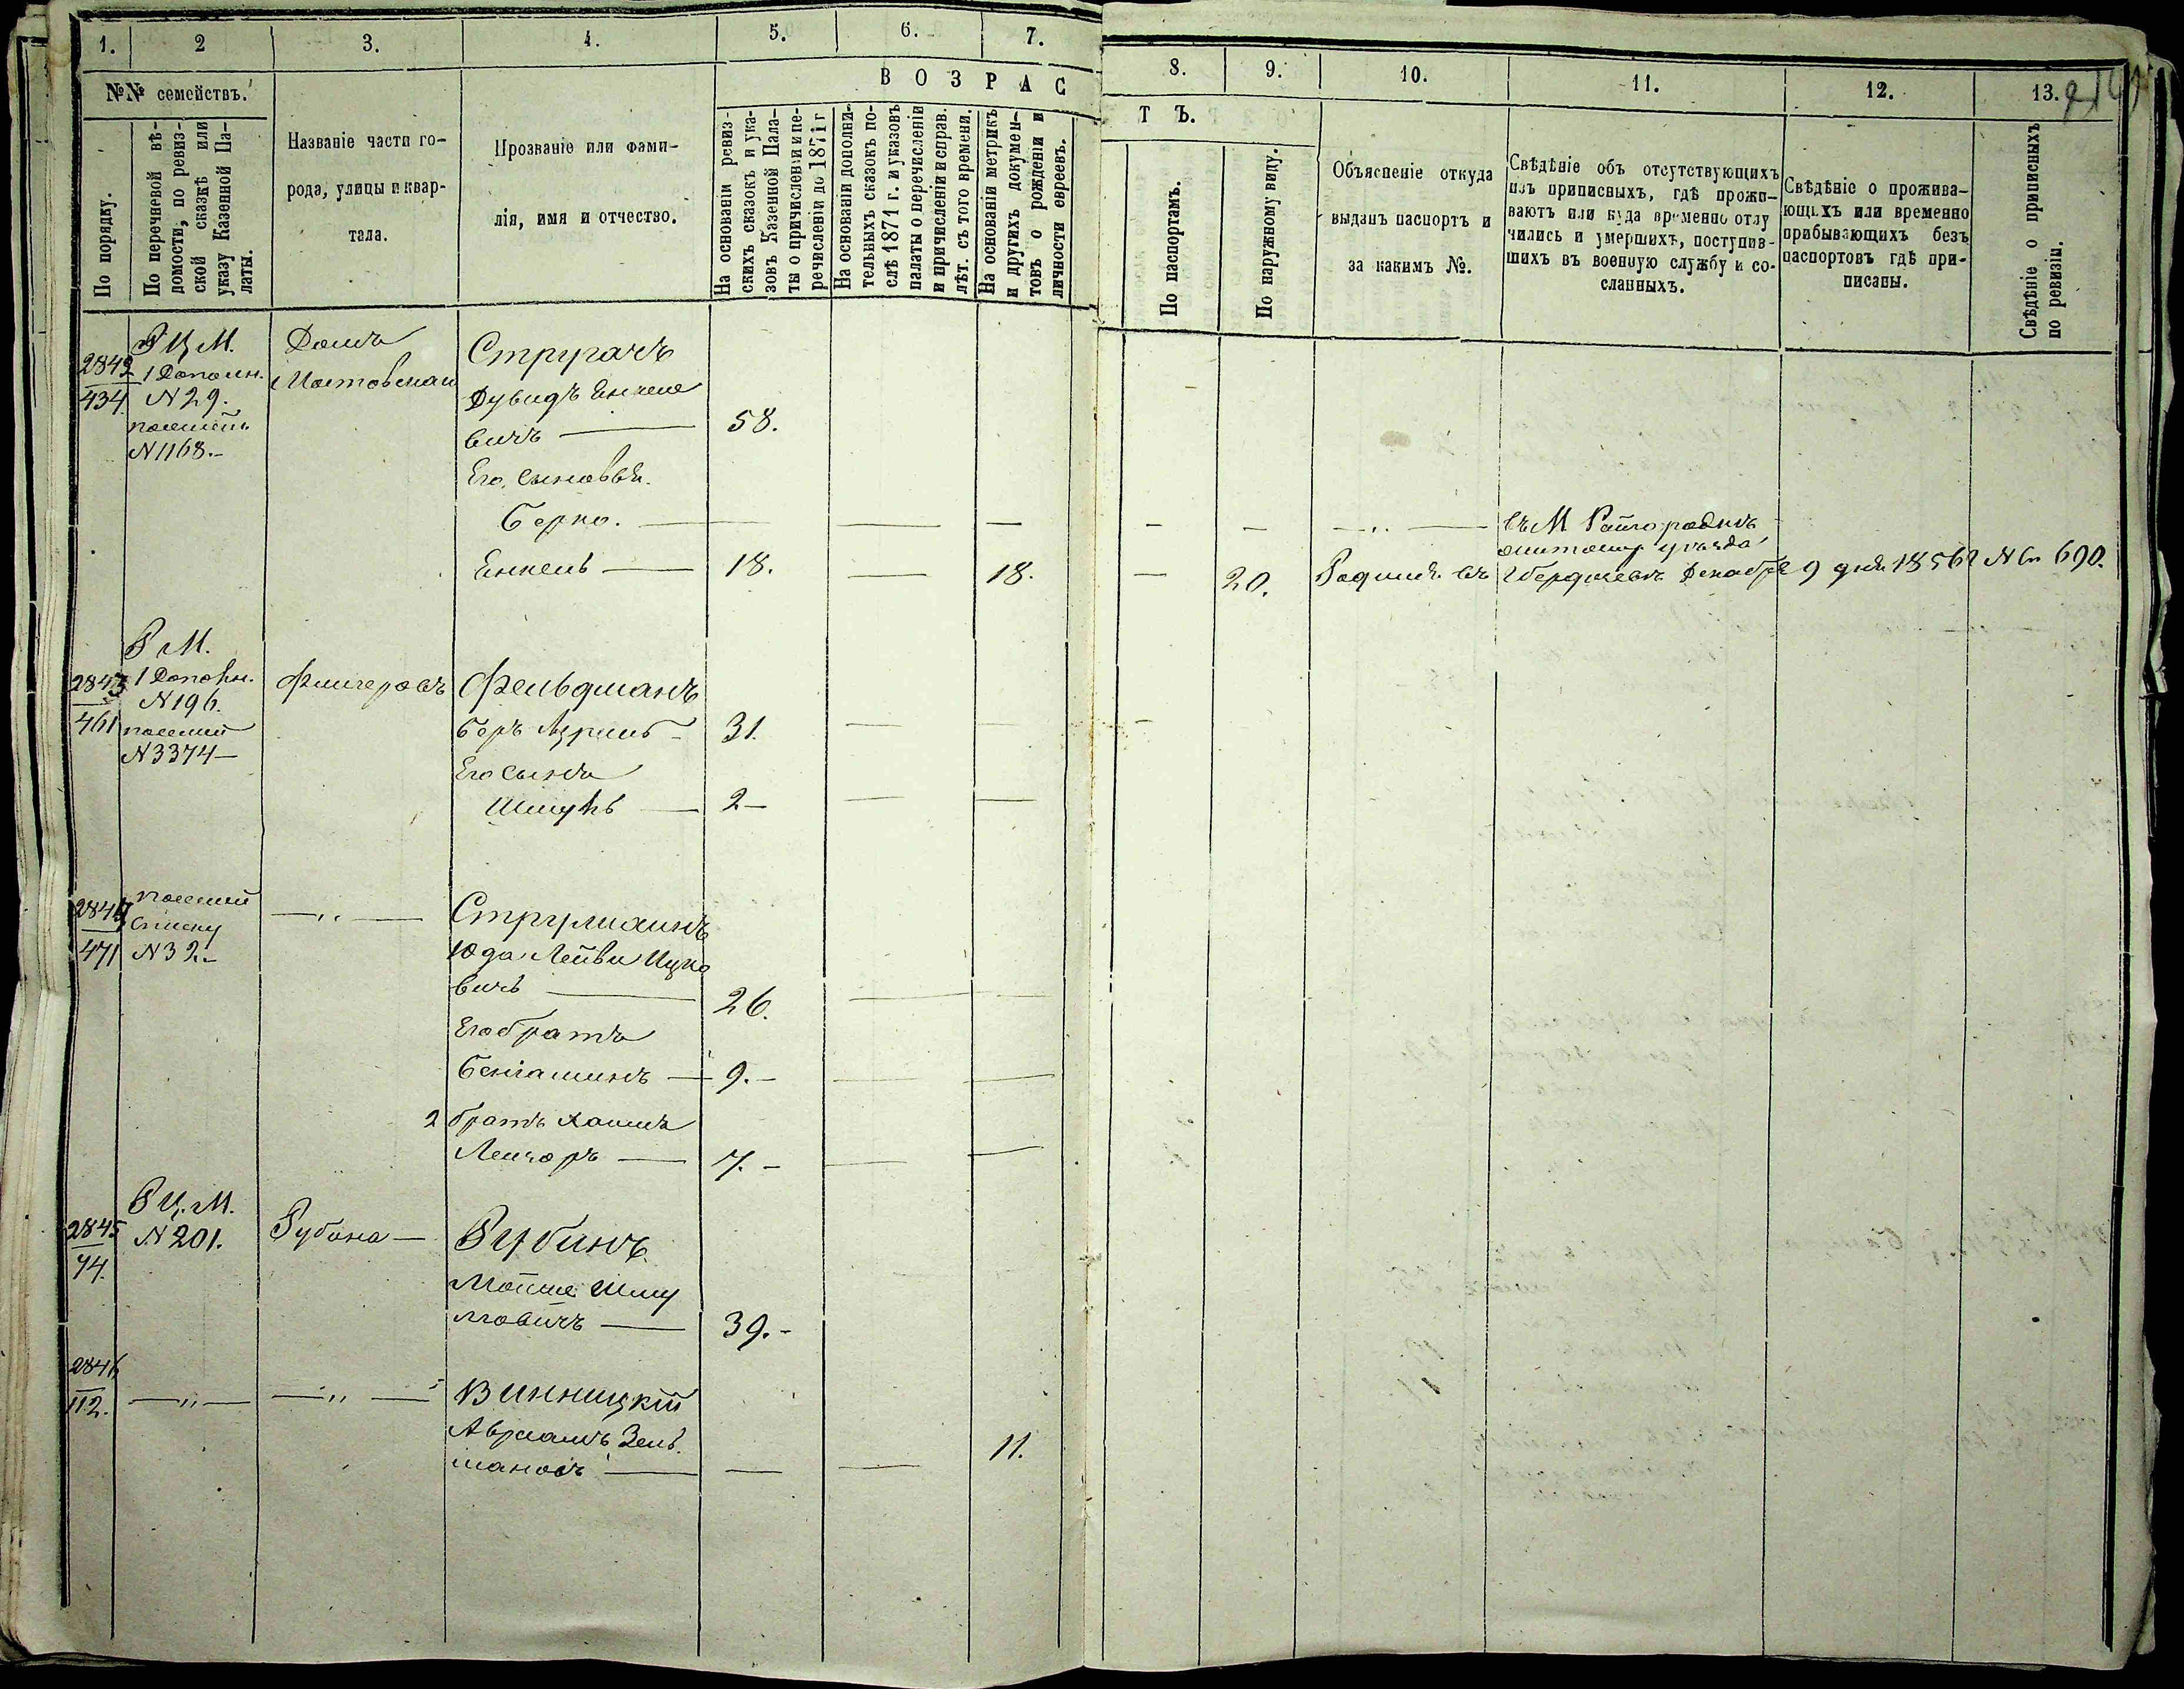 1. 2 3. 4. 5. 6. 7.
8. 9. 10. 11. 12. 13.
№№ семействъ.
По порядку.
По перечневой вѣ-
домости, по ревиз-
ской сказкѣ или
указу Казенной Па-
латы.
Названіе части го-
рода, улицы и квар-
тала.
Прозваніе или фами-
лія, имя и отчество.
ВОЗРАС
ТЪ.
На основаніи ревиз-
скихъ сказокъ и ука-
зовъ Казенной Пала-
ты о причисленіи и пе-
речисленіи до 1871 г
На основаніи дополни-
тельныхъ сказокъ по-
слѣ 1871 г. и указовъ
палаты о перечисленіи
и причисленіи и справ.
лѣт. съ того времени.
На основаніи метрикъ
и другихъ докумен-
товъ о рожденіи и
личности евреевъ.
По паспортамъ.
По наружному виду.
Объясненіе откуда
выданъ паспортъ и
за какимъ №.
Свѣдѣніе объ отсутствующихъ
изъ приписныхъ, гдѣ прожи-
ваютъ или куда временно отлу
чились и умершихъ, поступив-
шихъ въ военную службу и со-
сланныхъ.
Свѣдѣніе о прожива-
ющихъ или временно
прибывающихъ безъ
паспортовъ гдѣ при-
писаны.
Свѣдѣніе о приписныхъ
по ревизіи.
2842
434
1 Дополн.
N 29.
N 1168.-
Домъ
Стругачъ
Дувидъ Енкеле
вичъ — 58.
Его сыновья.
Берко. —
Енкель — 18. — 18. — 20.
въ М Райгородкѣ
Житомир уѣзда
Родился въ Гбердичевѣ Декабря 9 дня 1856 г N 690.
Р М.
2843
461
1 Дополн.
N 196.
N 3374 —
Фельдманъ
Беръ 31.
Его сынъ
Шмуль — 2 —
2844
471
списку
N 32.-
— „ —
Юда Лейви Ицко
вичъ — 26.
Его братъ
Беніаминъ — 9. —
2 братъ Хаимъ
Лейзоръ — 7. —
2845
74.
Р Ц. М.
N 201.
Рубина —
Рубинъ
Мойше Шму
ловичъ — 39. —
2846
112.
— „ —
— „ —
Винницкій
Авраамъ Зель
мановъ — — — 11.